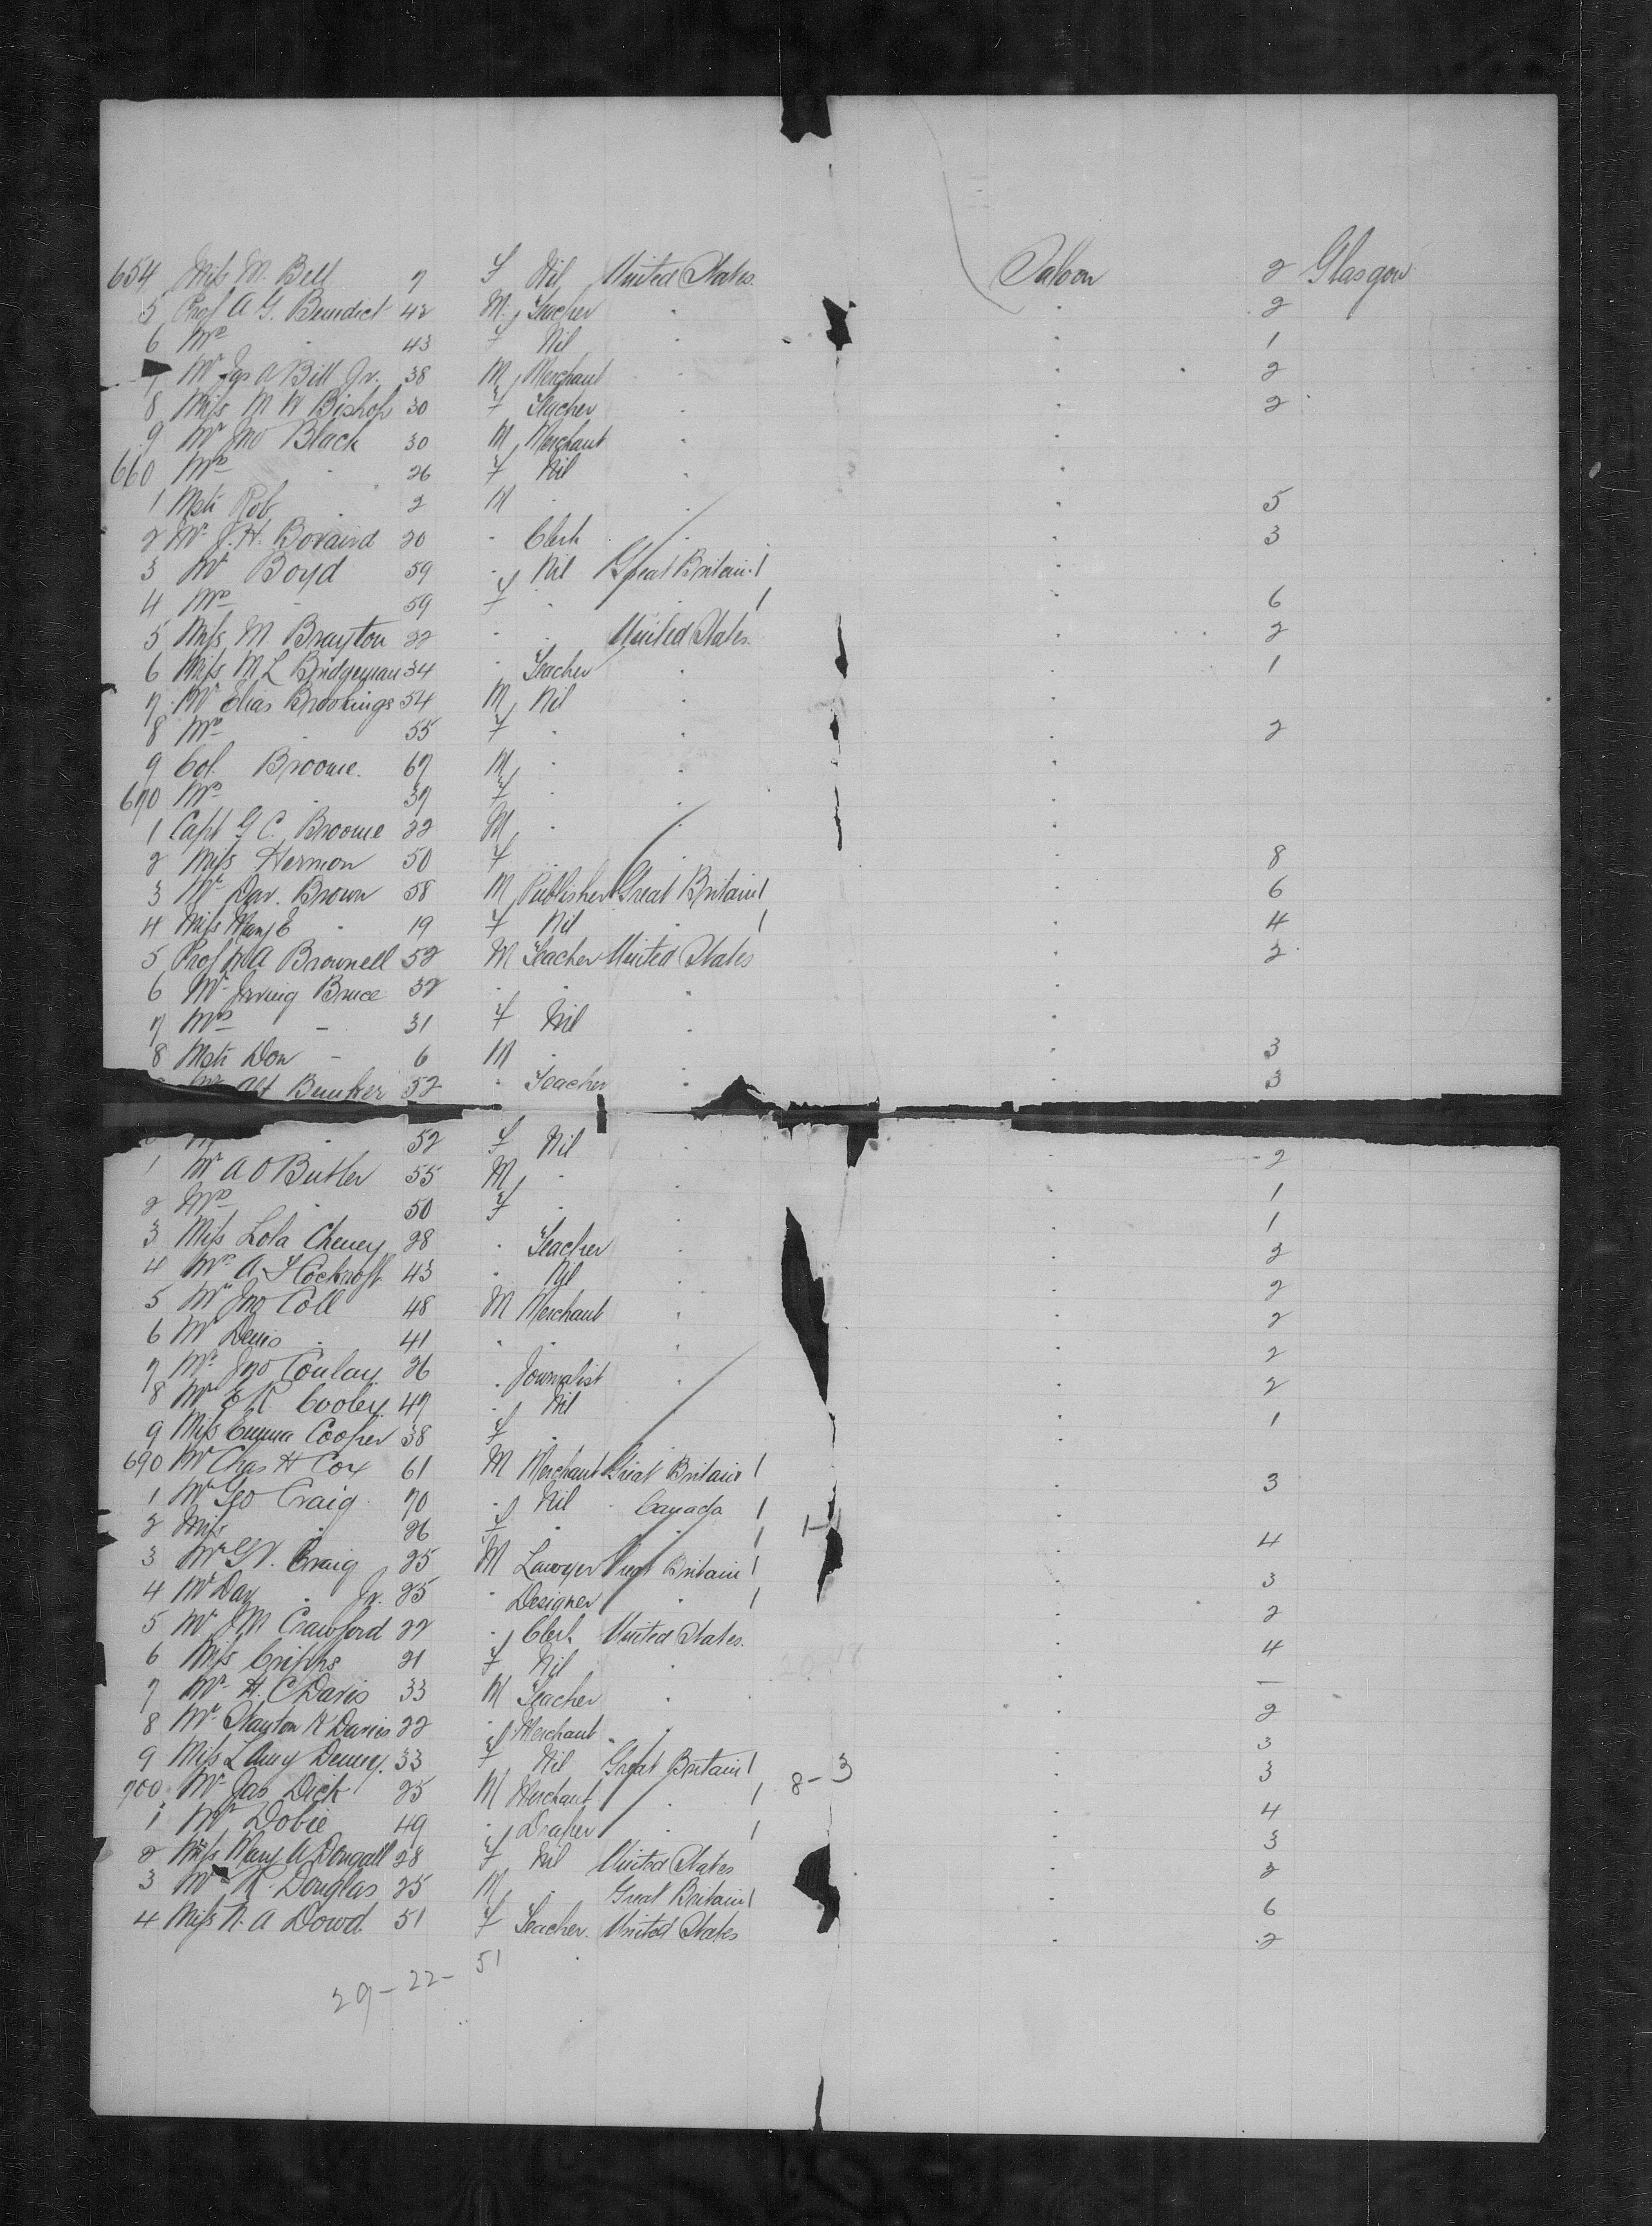 654 Miss M. Bell 7 F Nil United States. Saloon 2 Glasgow
5 Prof A G. Benedict 42 M Teacher " " 2
6 Mrs " 43 F Nil " " 1
7 Mr Jas A Bill Jr. 38 M Merchant " " 2
8 Miss M W Bishop 30 F Teacher " " 2
9 Mr Jno Black 30 M Merchant " "
660 Mrs " 26 F Nil " "
1 Mstr Rob " 2 M " " " 5
2 Mr J. H. Bovaird 20 " Clerk " " 3
3 Mr Boyd 59 " Nil Great Britain 1 "
4 Mrs " 59 F " " 1 " 6
5 Miss M. Brayton 22 " " United States. " 2
6 Miss M L Bridgeman 34 " Teacher " " 1
7 Mr Elias Brookings 54 M Nil "
8 Mrs " 55 F " " " 2
9 Col. Broome. 67 M " " "
670 Mrs " 37 F " " "
1 Capt G C. Broome 22 M " " "
2 Miss Hermon 50 F " " " 8
3 Mr Dav. Brown 58 M Publisher Great Britain 1 " 6
4 Miss Mary E " 19 F Nil 1 " 4
5 Prof W A Brownell 52 M Teacher United States " 2
6 Mr Irving Bruce 32 " " " "
7 Mrs " 31 F Nil " "
8 Mstr Don " 6 M " " 3
Alf Bunker 52 " Teacher " " 3
" 52 F Nil " " 2
1 Mr A O Butler 55 M " " "
2 Mrs " 50 F " " " 1
3 Miss Lola Cheney 28 " Teacher " " 1
4 Mrs A Cockroft 43 " Nil " " 2
5 Mr Jno Coll 48 M Merchant " " 2
6 Mr Denis " 41 " " " " 2
7 Mr Jno Conlay 26 " Journalist " " 2
8 Mr E R. Cooley. 47 " Nil " 2
9 Miss Emma Cooper 38 F " " " 1
690 Mr Chas H Cox 61 M Merchant Great Britain 1 " 3
1 Mr Geo Craig 70 " Nil Canada 1 "
2 Miss " 26 F " " 1 1-1 " 4
3 Mr Craig 25 M Lawyer Great Britain 1 " 3
4 Mr Dav " Jr. 25 " Designer " 1 " 2
5 Mr J M Crawford 22 " Clerk United States. " 4
6 Miss 21 F Nil " " —
7 Mr H. C Davis 33 M Teacher " " 2
8 Mr Clayton R Davies 22 " Merchant " " 3
9 Miss L Amy Denny. 33 F Nil Great Britain 1 " 3
700 Mr Jas Dick 25 M Merchant " 1 8-3 " 4
1 Mr Dobie 49 " Draper " 1 " 3
2 Miss Mary A Dougall 28 F Nil United States " 2
3 Mr R. Douglas 25 M " Great Britain 1 " 6
4 Miss N. A Dowd. 51 F Teacher. United States " 2
29-22-51